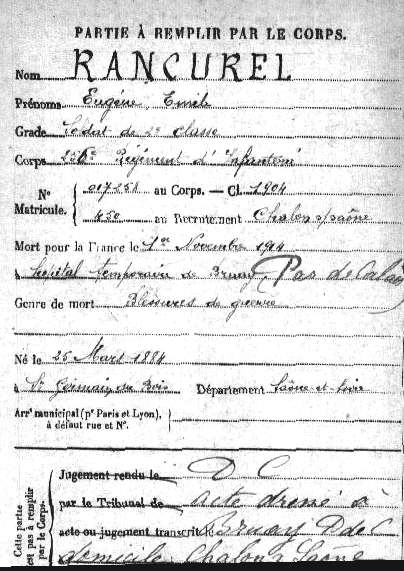 PARTIE À REMPLIR PAR LE CORPS.
Nom RANCUREL
Prénoms Eugène Emile
Grade Soldat de 2e classe
Corps 256e Régiment d'Infanterie
N° Matricule.
007254 au Corps. — Cl. 1904
450 au Recrutement Chalon s/saône
Mort pour la France le 1er Novembre 1914
à Hôpital temporaire de Bruay Pas de Calais
Genre de mort Blessures de guerre
Né le 25 Mars 1884
à St Germain du Bois Département Saône-et-Loire
Arrt municipal (pr Paris et Lyon), à défaut rue et N°.
Cette partie n'est pas à remplir par le Corps.
Jugement rendu le D C
par le Tribunal de acte dressé à
acte ou jugement transcrit le Bruay P de C
domicile Chalon s Saône